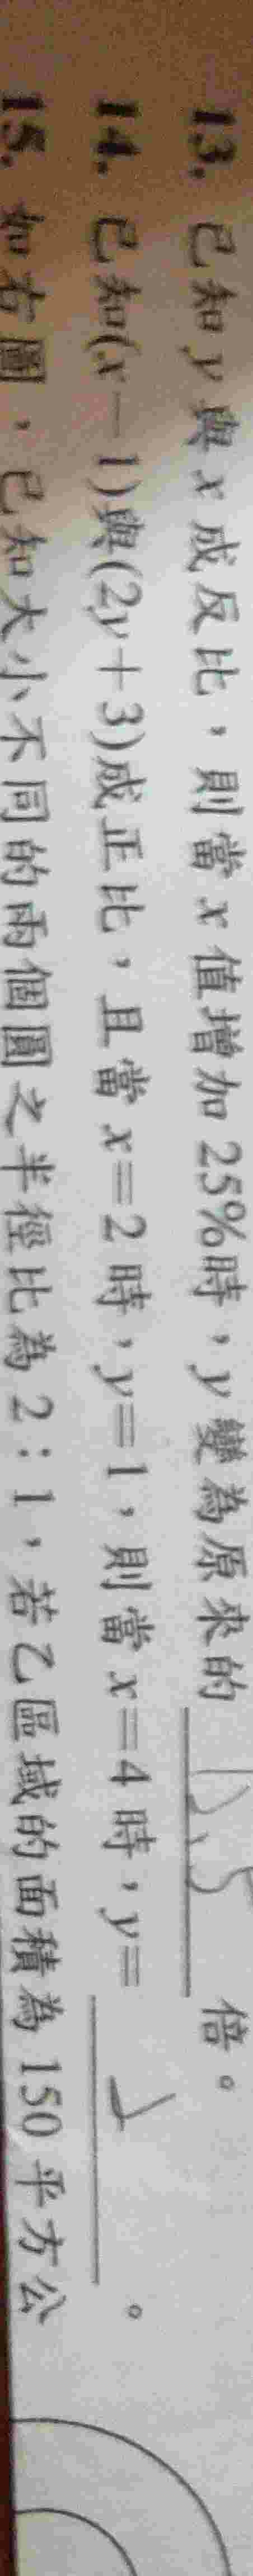 13. 已知 y 與 x 成反比，則當 x 值增加 25%時，y 變為原來的 倍。
14. 已知(x－1)與(2y＋3)成正比，且當 x＝2 時，y＝1，則當 x＝4 時，y＝ 。
15. 如右圖，已知大小不同的兩個圓之半徑比為 2：1，若乙區域的面積為 150 平方公